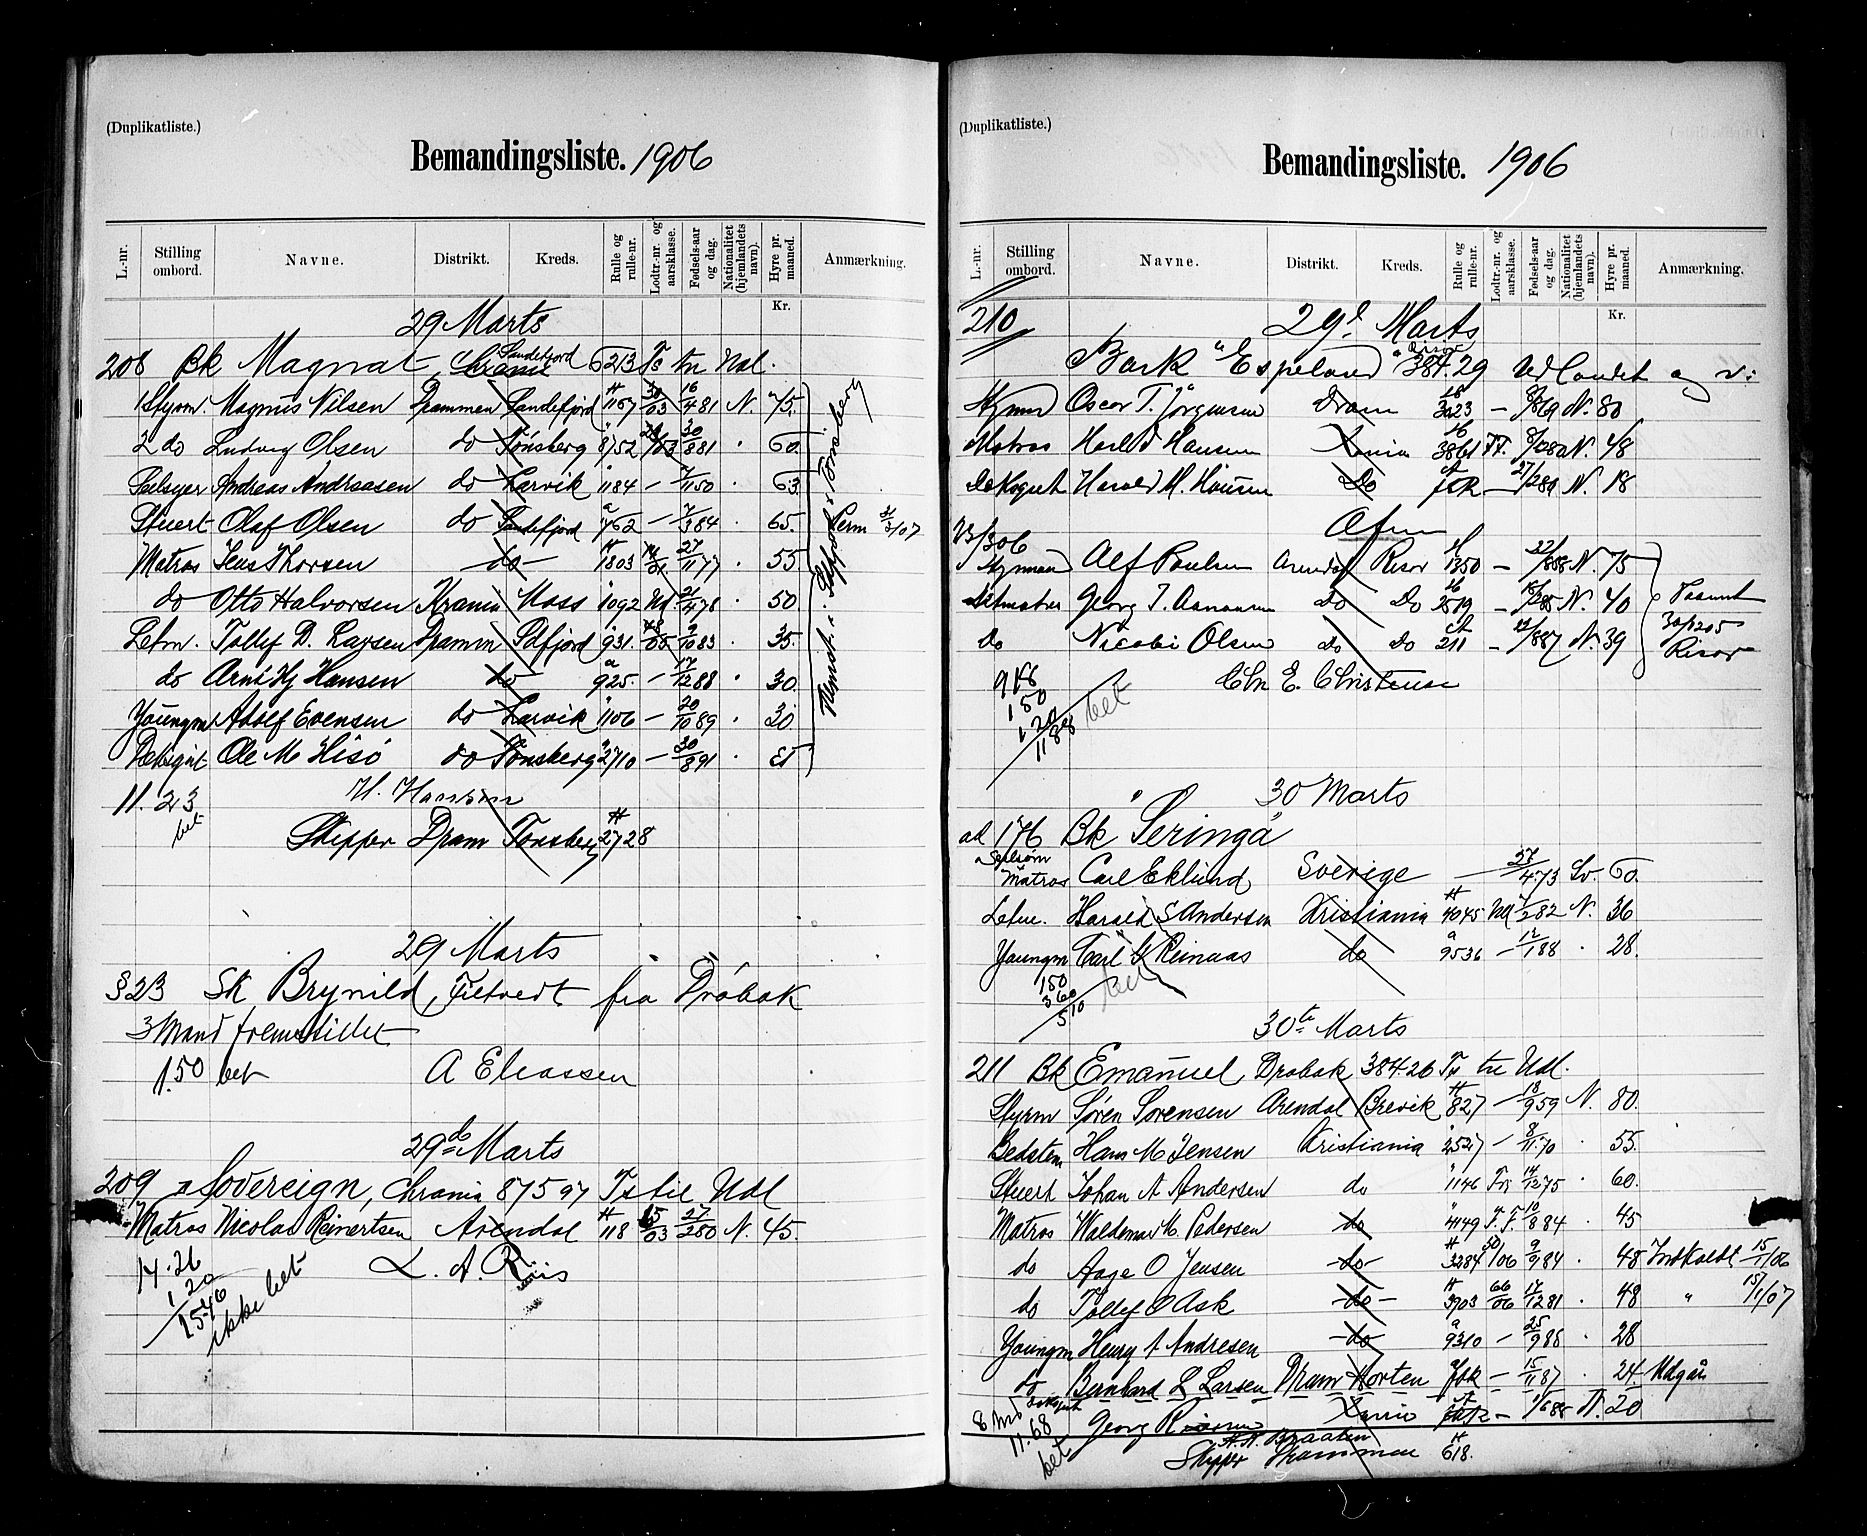 (Duplikatliste.)
Bemandingsliste. 1906
L.-nr. Stilling ombord. Navne. Distrikt. Kreds. Rulle og rulle-nr. Lodtr.-nr. og aarsklasse. Fødsels-aar og dag. Nationalitet (hjemlandets navn). Hyre pr. maaned. Anmærkning.
Kr.
29 Marts
208 Bk Magnat, Sandefjord 6213 Ts tn Udl.
1 Styrm. Magnus Nilsen Drammen Sandefjord 1157 30/03 16/4 81 N. 75.
2 do Ludvig Olsen do Tønsberg 8752 30/8 81 60.
Seilsyer Andreas Andreasen do Larvik 1184 — 7/11 50 63.
Stuert Olaf Olsen do Sandefjord 762 — 7/3 84 65. Perm 31/3/07
Matros Jens Thorsen do 1803 27/11 77 55
do Otto Halvorsen Krania Moss 1092 Ud. 21/4 78 50.
Letm. Tollef D. Larsen Drammen Sdfjord 931. 9/10 83 35.
do Arnt Hj Hansen do 925. — 17/12 88 30.
Youngm Adolf Evensen do Larvik 1106 — 20/10 89 30
Ole M Hisö do Tønsberg 2710 — 30/8 91
11.23
bet
H. Hansen
Skipper Dram Tønsberg 2728
29 Marts
§ 23 Sk Brynild, Filtvedt fra Drøbak
3 Mand fremstillet
1.50 bet A Eliassen
29de Marts
209 Sovereign, Chrania 875 97 Ts til Udl
Matros Nicolai Reinertsen Arendal 118 15/03 27/2 80 N. 45.
14.26
1 20
15.46
ikke bet
L. A. Riis
(Duplikatliste.)
Bemandingsliste. 1906
L.-nr. Stilling ombord. Navne. Distrikt. Kreds. Rulle og rulle-nr. Lodtr.-nr. og aarsklasse. Fødsels-aar og dag. Nationalitet (hjemlandets navn). Hyre pr. maaned. Anmærkning.
Kr.
210 29de Marts
Bark "Espeland" Risør 384.29 Udlandet og v:
Styrmd Oscar T. Jørgensen Dram 3023 — N. 80
Matros Harald Hansen Xania 3861 F.F. N. 48
Deksgut Harald M. Hansen Do — 27/2 89 N. 18
Afm
Styrmand Alf Paulsen Arendal Risør 1350 — 22/8 58 N. 75
Letmatros Georg T. Aanonsen Do Do 2519 — N. 40
do Nicolai Olsen do Do 211 — N. 39
Paamt
30/12 05
Risør
Chr E. Christensen
918
150
1.20
11 88
bet
30 Marts
ad 176 Bk "Seringa"
Matros Carl Eklund Sverige — 27/4 73 Sv. 60.
Letm. Harald S Andersen Kristiania 4045 Ud 7/2 82 N. 36
Youngm Carl G Reinaas do 9536 — 12/1 88 28.
150
3 60
5 10
bet
30te Marts
211 Bk Emanuel, Drøbak 384.26 Ts tn Udl.
Styrm Søren Sørensen Arendal Brevik 827 — 18/9 59 N. 80.
Bedstem Hans M Jensen Kristiania 2527 — 8/11 70 55.
Stuert Johan A Andersen do 1146 14/12 75 60.
Matros Waldemar K. Pedersen do 4149 F.F. 10/8 84 45
do Aage O Jensen do 3284 50/06 9/9 84 48 Indkaldt 15/1/06
do Tollef O Ask do 3903 66/06 17/12 81 48 " 15/1/07
Youngm Henry A Andresen do 9310 — 25/9 88 28
do Bernhard L Larsen Dram Horten — 15/11 87 24 Udgår
Georg Xania — N. 20
8 Md
11.68
bet
H. H. Braaten
Skipper Drammen 618.